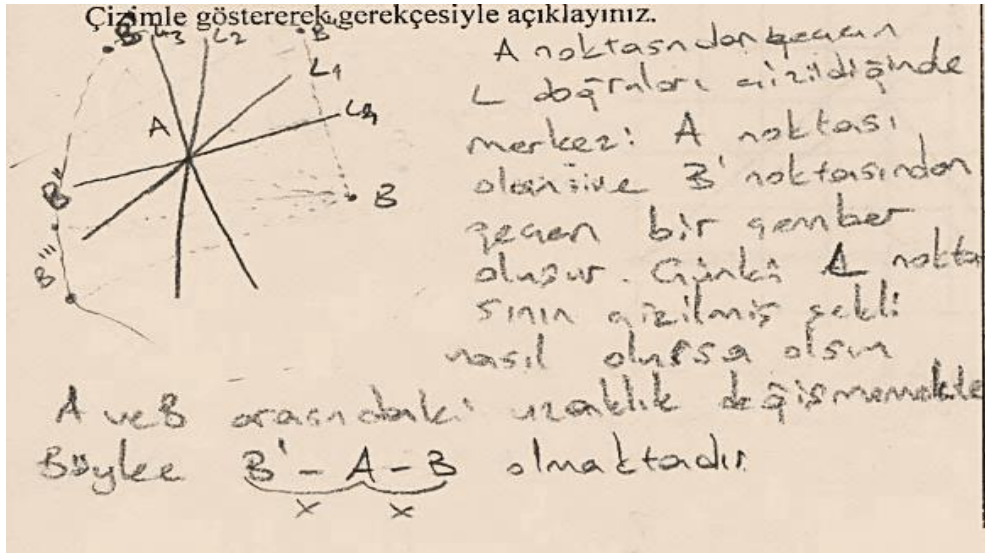 Çizimle göstererek, gerekçesiyle açıklayınız.
L3 L2 B'
L1
L4
A
B
B''
B'''
A noktasından geçen
L doğruları çizildiğinde
merkezi A noktası
olan ve B' noktasından
geçen bir çember
oluşur. Çünkü L nokta
sının çizilmiş şekli
nasıl olursa olsun
A ve B arasındaki uzaklık değişmemekte
Böylece B' - A - B olmaktadır.
x x